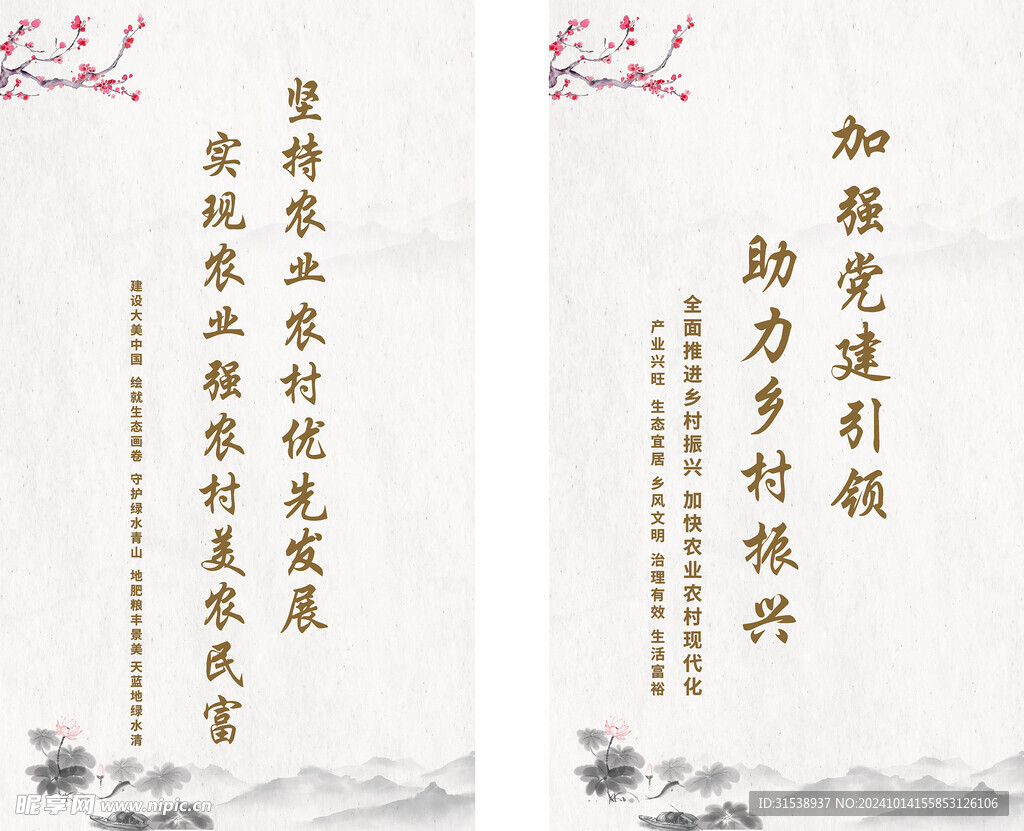 坚持农业农村优先发展
实现农业强农村美农民富
建设大美中国 绘就生态画卷 守护绿水青山 地肥粮丰景美 天蓝地绿水清
加强党建引领
助力乡村振兴
全面推进乡村振兴 加快农业农村现代化
产业兴旺 生态宜居 乡风文明 治理有效 生活富裕
昵享网 www.nipic.cn
ID:31538937 NO:20241014155853126106